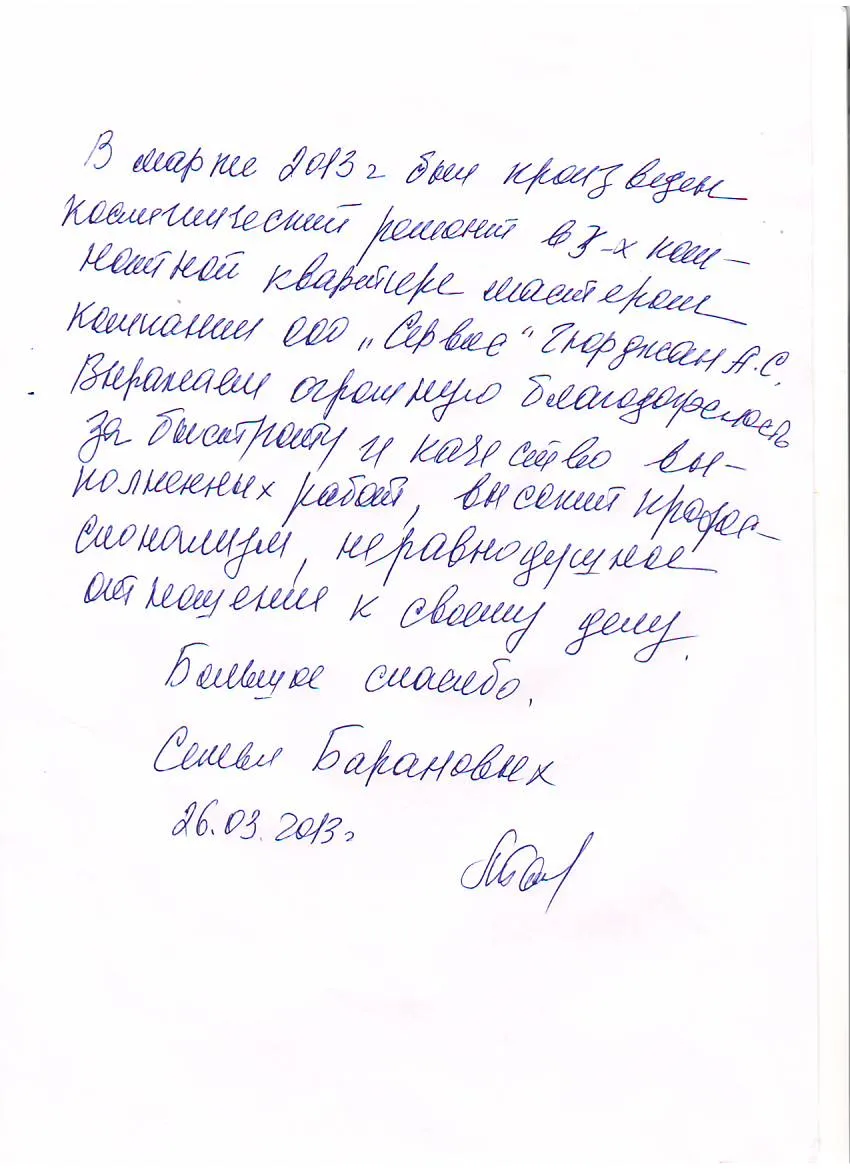 В марте 2013 г был произведен
косметический ремонт в 3-х ком-
натной квартире мастером
компании ООО „Сервис“ Гюрджан А.С.
Выражаем огромную благодарность
за быстроту и качество вы-
полненных работ, высокий профес-
сионализм, неравнодушное
отношение к своему делу.
Большое спасибо.
Семья Барановых
26.03.2013 г